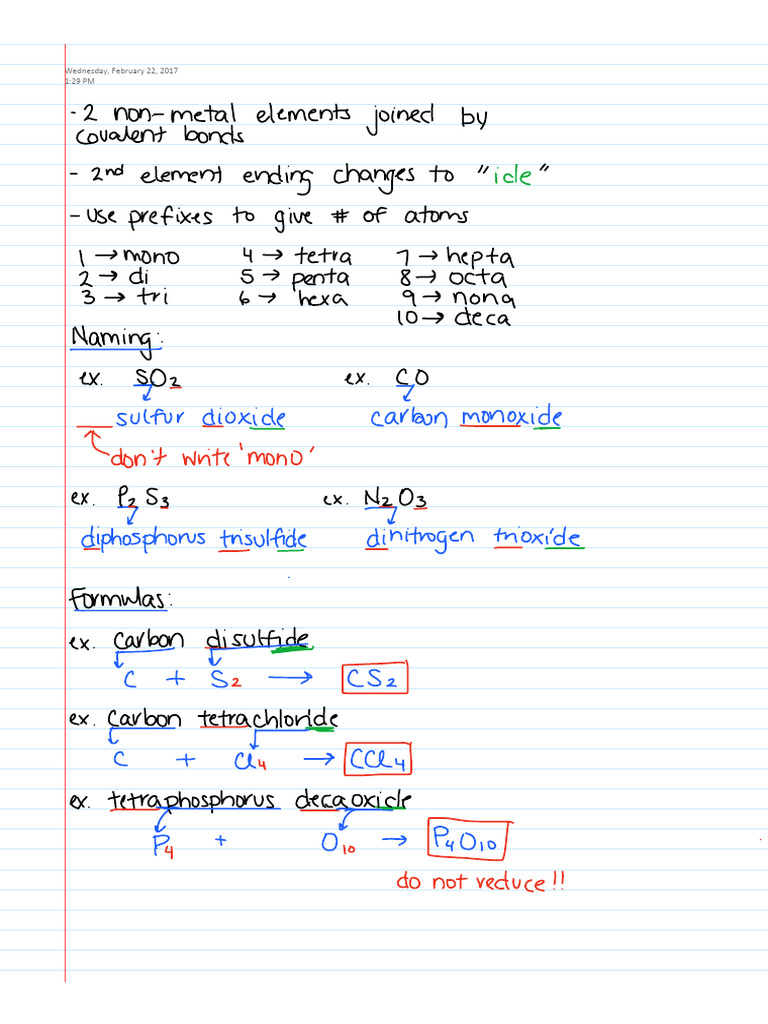 Wednesday, February 22, 2017
1:29 PM
- 2 non-metal elements joined by
covalent bonds
- 2nd element ending changes to "ide"
- use prefixes to give # of atoms
1 → mono 4 → tetra 7 → hepta
2 → di 5 → penta 8 → octa
3 → tri 6 → hexa 9 → nona
10 → deca
Naming:
ex. SO2 ex. CO
__ sulfur dioxide carbon monoxide
don't write 'mono'
ex. P2S3 ex. N2O3
diphosphorus trisulfide dinitrogen trioxide
Formulas:
ex. carbon disulfide
C + S2 → CS2
ex. carbon tetrachloride
C + Cl4 → CCl4
ex. tetraphosphorus decaoxide
P4 + O10 → P4O10
do not reduce!!